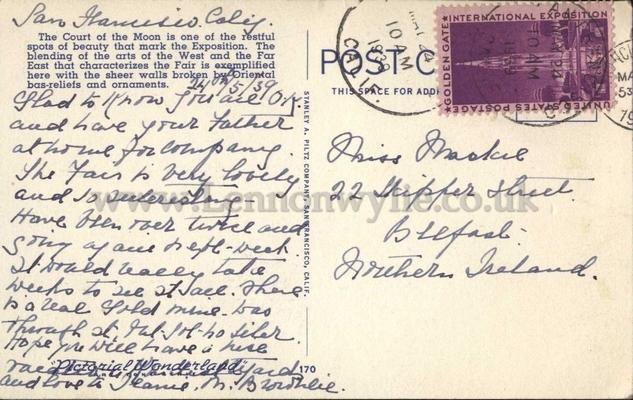 San Francisco. Calif.
The Court of the Moon is one of the restful
spots of beauty that mark the Exposition. The
blending of the arts of the West and the Far
East that characterizes the Fair is exemplified
here with the sheer walls broken by Oriental
bas-reliefs and ornaments.
24/5/39
Glad to know you are O.K.
and have your Father
at home for company.
The Fair is very lovely
and so interesting
Have been over twice and
going again next week
It would really take
weeks to see it all. There
is a real Gold mine. was
through it
Hope you will have a nice
"Pictorial Wonderland"
and love to Jeanie. M. Brownlie.
170
STANLEY A. PILTZ COMPANY, SAN FRANCISCO, CALIF.
POST C
THIS SPACE FOR ADDR
MAY 24
10 AM
1939
CALIF.
GOLDEN GATE
INTERNATIONAL EXPOSITION
1939
UNITED STATES POSTAGE
Miss Mackie
22 Skipper Street.
Belfast.
Northern Ireland.
www.Lennonwylie.co.uk